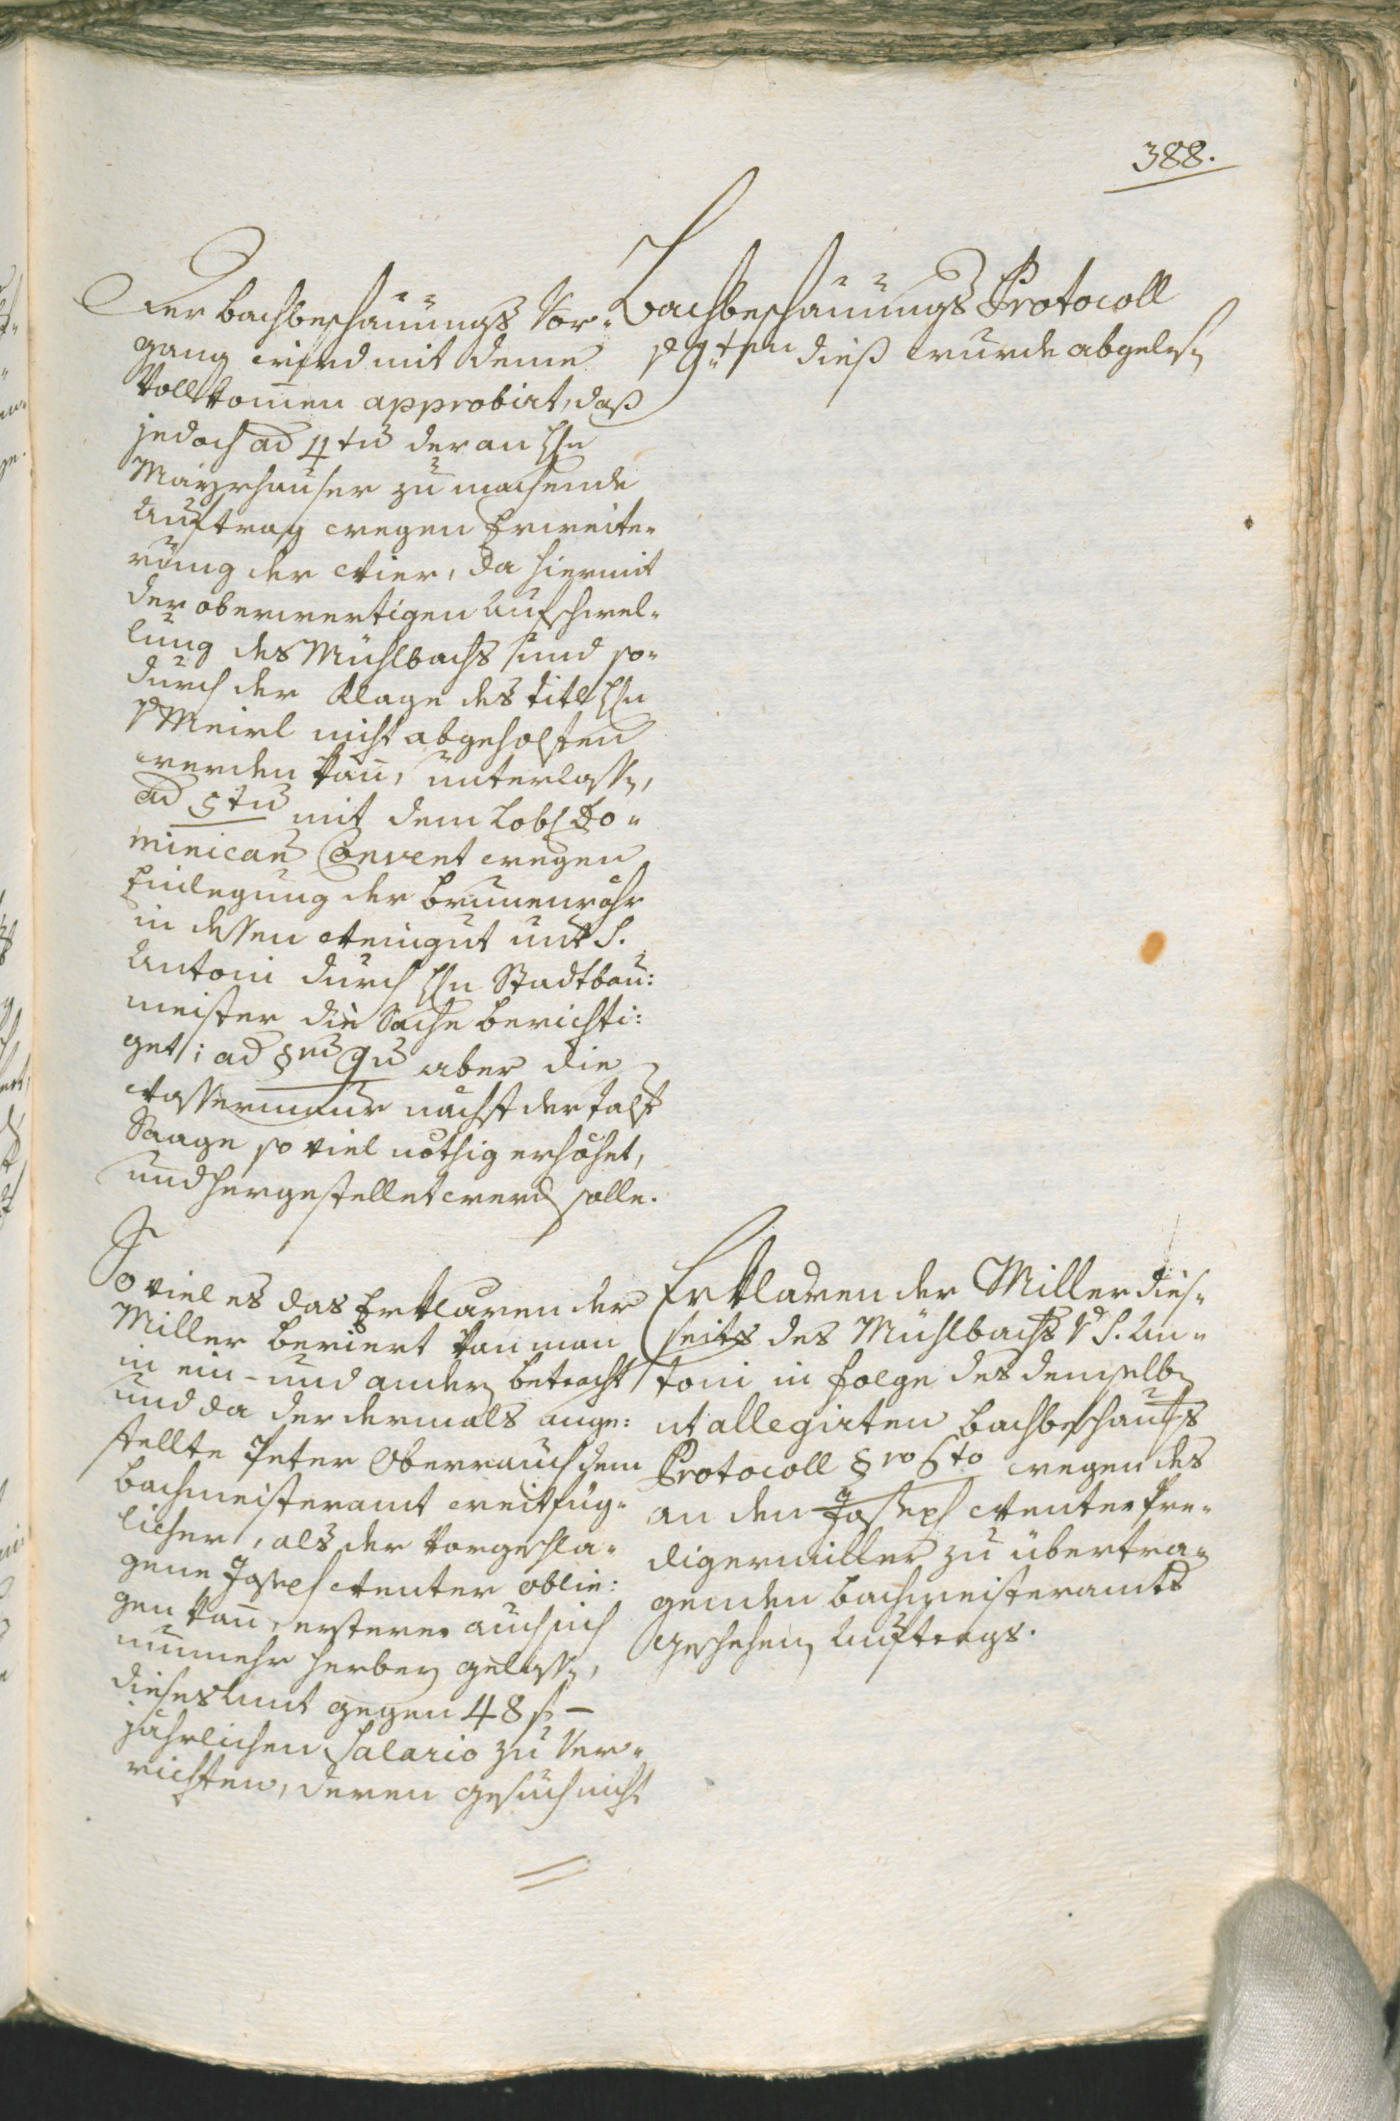 388.
Bachbeschauungs Protocoll
v 9ten dieß wurde abgelesen
Der Bachbeschauungs Vor-
gang wird mit deme
vollkom̅en approbirt, daß
jedoch ad 4tu̅ der an H̅n
Mayrhauser zu machende
Auftrag wegen Erweite-
rung der Wier, da hiermit
der oberwertigen Aufschwel-
lung des Mühlbachs sund so-
durch der Klage des titl H̅n
v Meirl nicht abgeholfen
werden kan̅, unterlassen,
ad 5tu̅ mit dem Löbl Do-
minican̅ Convent wegen
Einlegung der Brunnenröhr
in dessen Weingut unt S.
Antoni durch H̅n Stadtbau:
meister die Sache berichti:
get; ad §m̅ 9u̅ aber die
Wassermaur nächst der Talf
Saage so viel nöthig erhöhet,
und hergestellet werden solle.
Erklären der Miller dies-
seits des Mühlbachs v S. An-
toni in Folge des demselben
ut allegirten Bachbeschauungs
Protocoll §ro 6to wegen des
an den Joseph Wenter Pre-
digermiller zu übertra-
genden Bachmeisteramts
geschehenen Auftrags.
So viel es das Erklären der
Miller beriert kan man
in ein- und andern betracht
und da der dermals ange:
stellte Peter Oberrauch dem
Bachmeisteramt weit füg-
licher, als der vorgeschla-
gene Joseph Wenter oblie:
gen kan̅, ersterer auch sich
nunmehr herbey gelassen,
dieses Amt gegen 48 f –
jährlichen Salario zu ver-
richten, deren Gesuch nicht